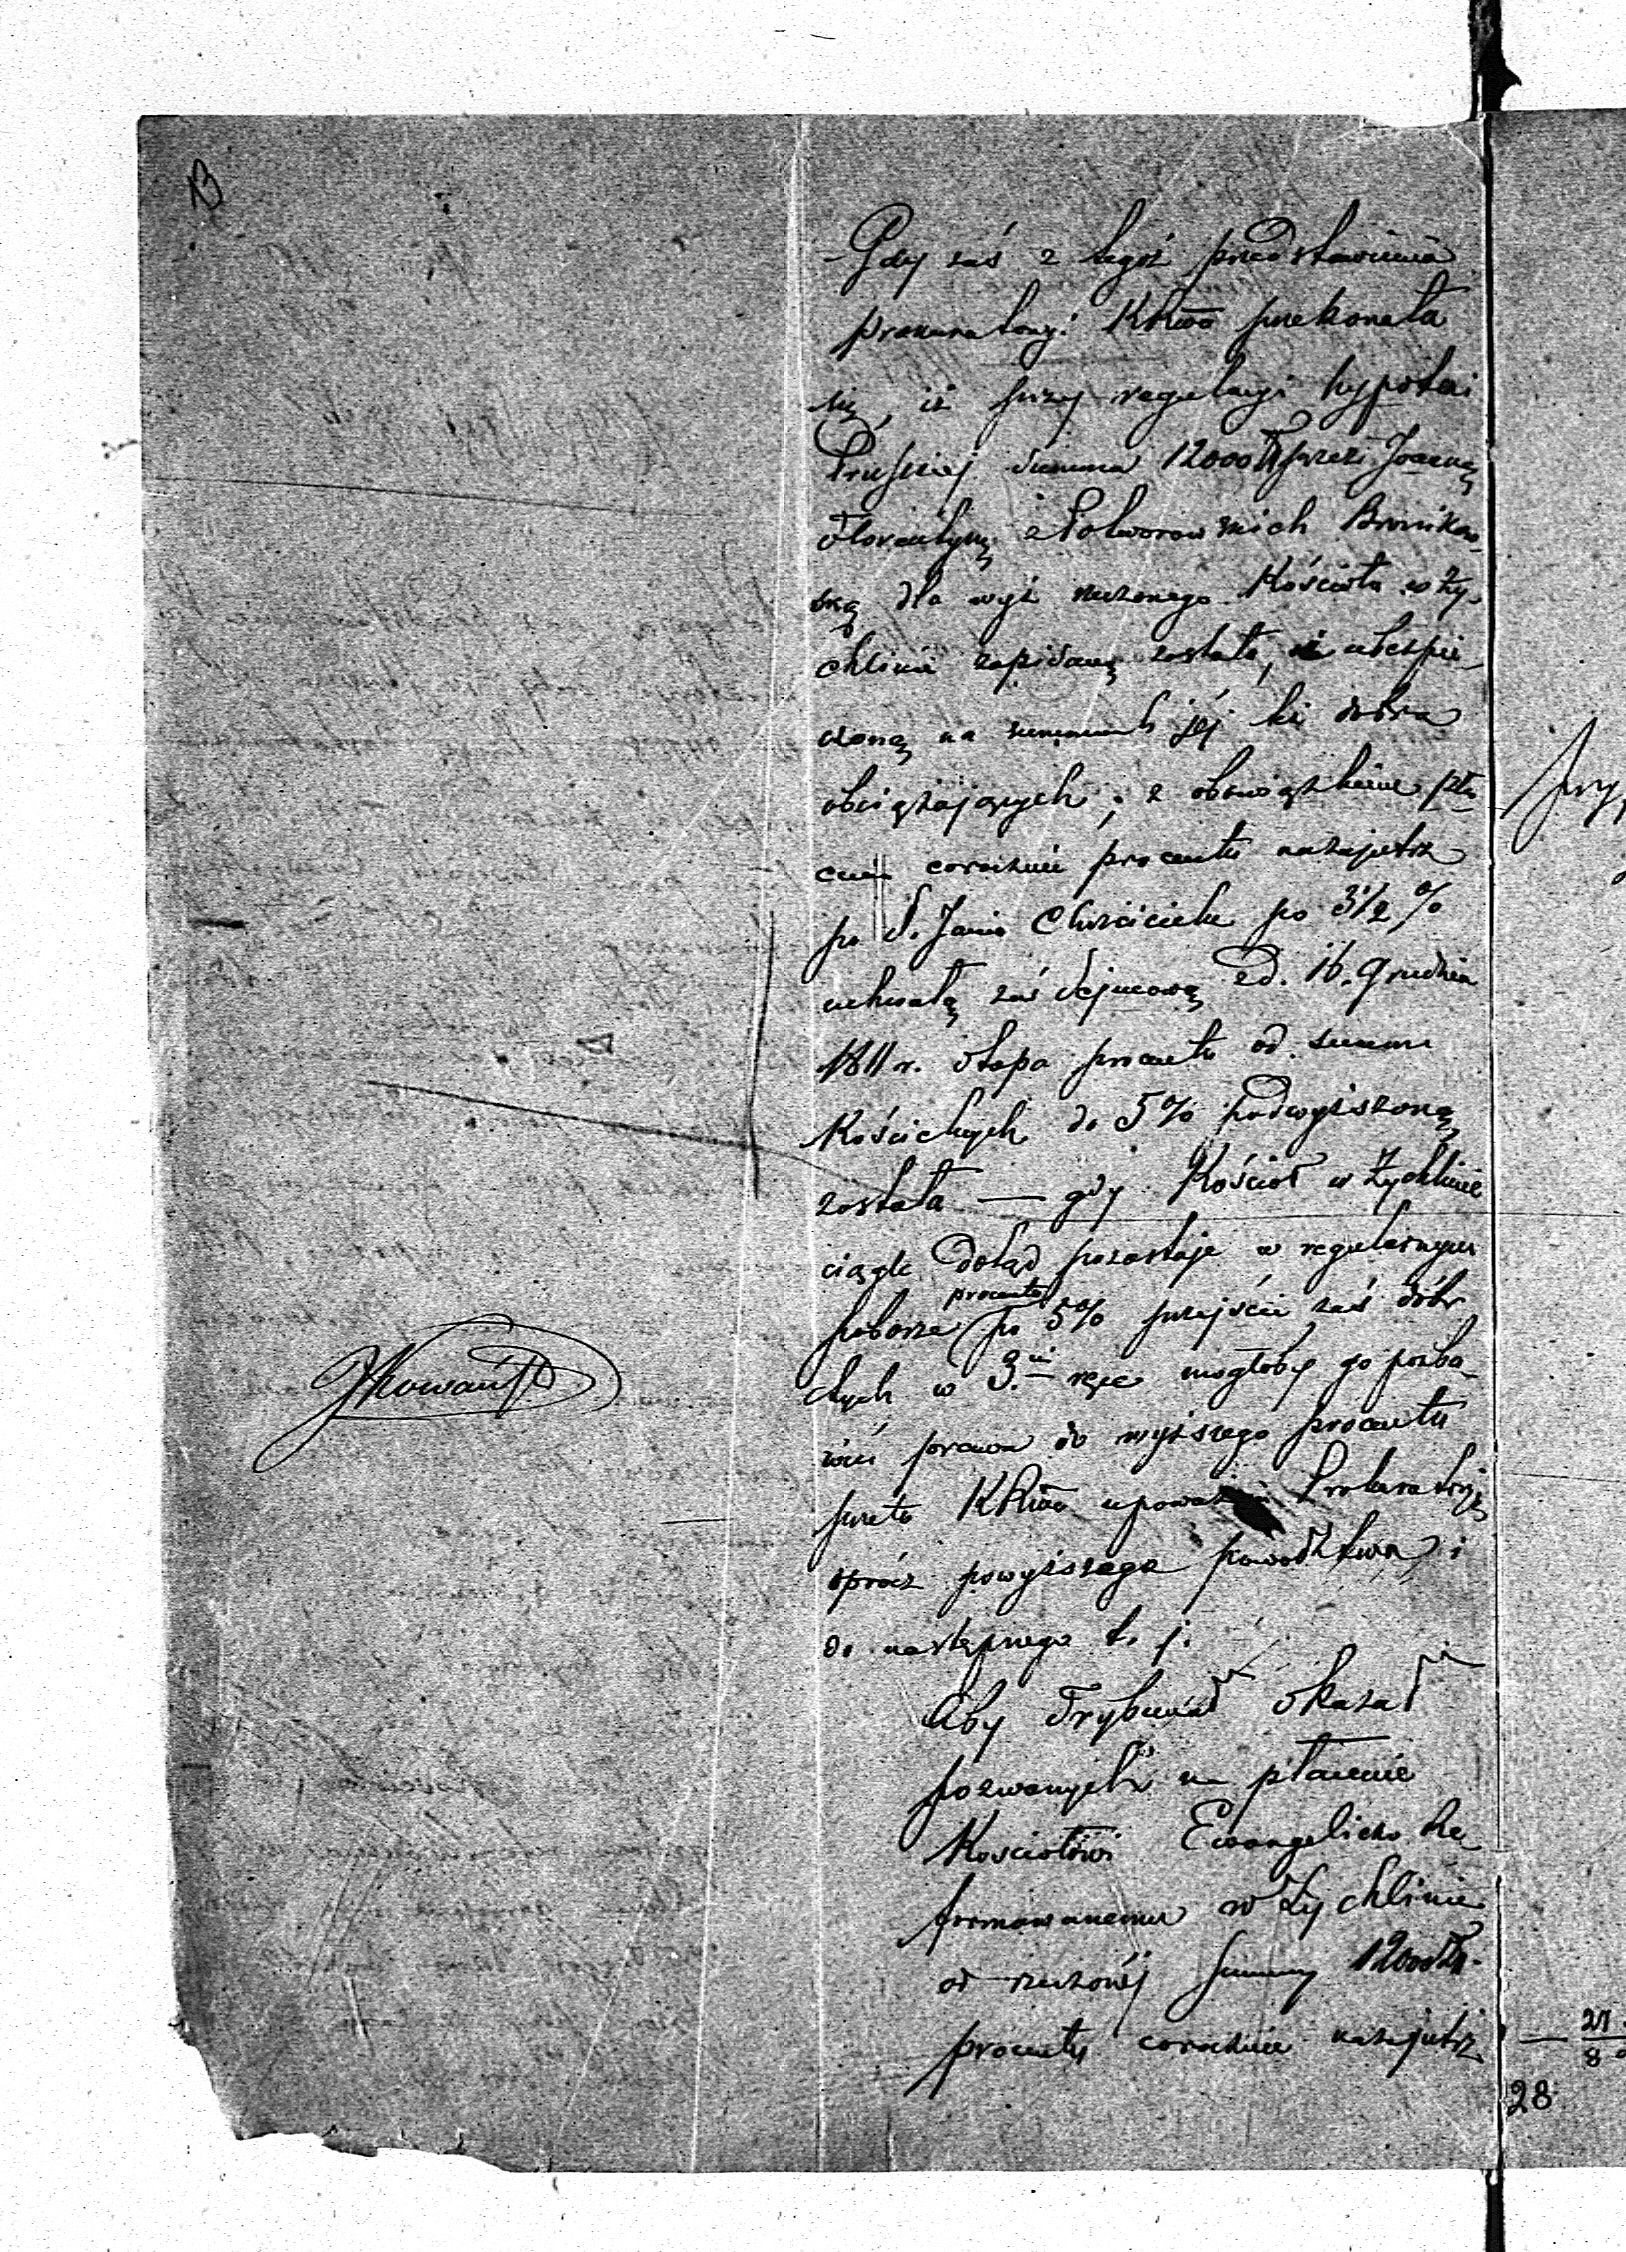 13
Gdy zaś z tegoż przedstawienia
Prokuratoryi KRwa przekonała
się, iż przy regulacyi hypoteki
Pruskiej summa 12000 zł przez Joannę
Florentynę z Potworowskich Bronikow-
ską dla wyż rzeczonego Kościoła w Ży-
chlinie zapisaną została, i ubezpie-
czoną na summach jej te dobra
obciążających, z obowiązkiem pła-
cenia corocznie procentu nazajutrz
po S. Janie Chrzcicielu po 3 1/2 %
uchwałą zaś Sejmową z d. 16. Grudnia
1811 r. stopa procentu od summ
Kościelnych do 5% podwyższoną
została — gdy Kościół w Żychlinie
ciągle dotąd pozostaje w regularnym
poborze procentu po 5% przejście zaś dóbr
tych w 3.cie ręce mogłoby go pozba-
wić prawa do wyższego procentu
przeto KRwa upoważnia Prokuratoryę
oprócz powyższego powództwa i
do następnego t. j.
Aby Trybunał skazał
pozwanych na płacenie
Kościołowi Ewangelicko Re-
formowanemu w Żychlinie
od rzeczonéj Summy 12000 zł.
procentu corocznie nazajutrz
28